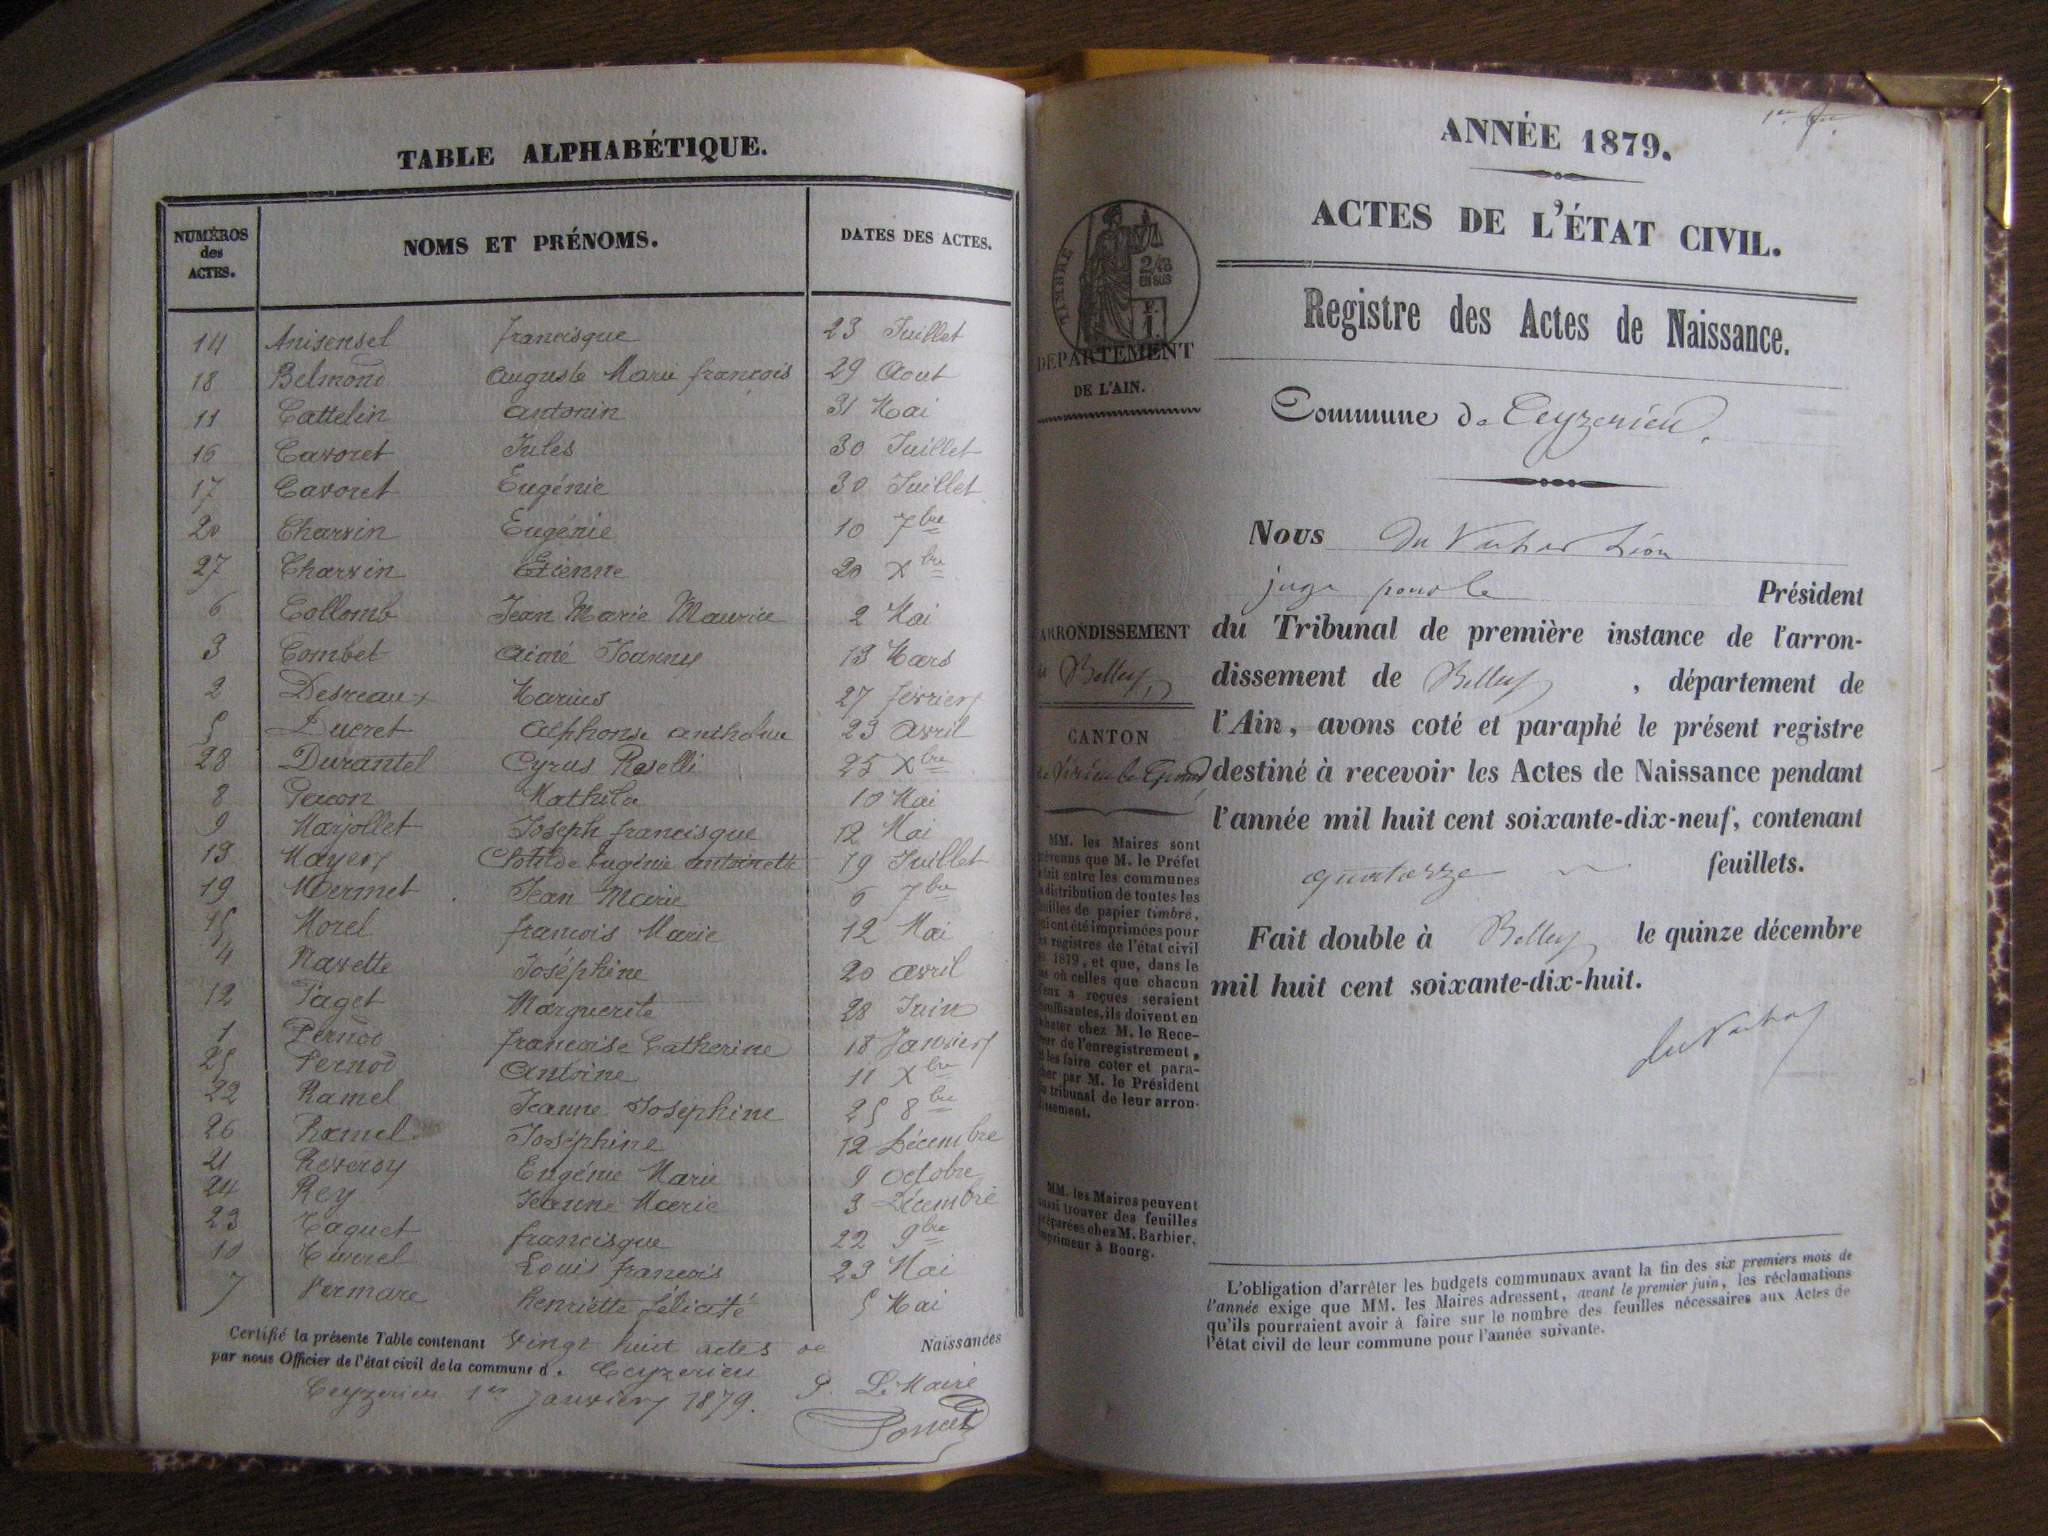 TABLE ALPHABÉTIQUE.
NUMÉROS des ACTES. NOMS ET PRÉNOMS. DATES DES ACTES.
14 Anisensel francisque 23 Juillet
18 Belmond auguste Marie françois 29 Aout
11 Cattelin antonin 31 Mai
16 Cavoret Jules 30 Juillet
17 Cavoret Eugénie 30 Juillet
20 Charvin Eugénie 10 7bre
27 Charvin Etienne 20 Xbre
6 Collomb Jean Marie Maurice 2 Mai
3 Combet aimé Joanny 13 Mars
2 Desreaux Marius 27 février
5 Ducret alphonse anthelme 23 avril
28 Durantel Cyrus Roselli 25 Xbre
8 10 Mai
9 Marjollet Joseph francisque 12 Mai
13 Mayery Clotilde Eugénie antoinette 19 Juillet
19 Mermet Jean Marie 6 7bre
15 Morel francois Marie 12 Mai
4 Navette Joséphine 20 avril
12 Paget Marguerite 28 Juin
1 Pernod francoise Catherine 18 Janvier
25 Pernod Antoine 11 Xbre
22 Ramel Jeanne Josephine 25 8bre
26 Ramel Joséphine 12 Décembre
21 Reveroy Eugénie Marie 9 octobre
24 Rey Jeanne Marie 3 Décembre
23 Taquet francisque 22 9bre
10 Louis françois 23 Mai
7 Vermare henriette félicité 5 Mai
Certifié la présente Table contenant vingt huit actes de Naissances
par nous Officier de l'état civil de la commune d. Ceyzerieu
Ceyzerieu 1er janvier 1879. P. Le Maire
1er
ANNÉE 1879.
ACTES DE L'ÉTAT CIVIL.
Registre des Actes de Naissance.
TIMBRE
2/10 EN SUS
F. 1.
DÉPARTEMENT
DE L'AIN.
Commune de Ceyzerieu.
Nous du Vachat Léon
juge pour le Président
du Tribunal de première instance de l'arron-
dissement de Belley, département de
l'Ain, avons coté et paraphé le présent registre
destiné à recevoir les Actes de Naissance pendant
l'année mil huit cent soixante-dix-neuf, contenant
quatorze feuillets.
Fait double à Belley le quinze décembre
mil huit cent soixante-dix-huit.
du Vachat
ARRONDISSEMENT
de Belley
CANTON
de Virieu le Grand
MM. les Maires sont
prévenus que M. le Préfet
a fait entre les communes
la distribution de toutes les
feuilles de papier timbré,
qui ont été imprimées pour
les registres de l'état civil
de 1879, et que, dans le
cas où celles que chacun
d'eux a reçues seraient
insuffisantes, ils doivent en
acheter chez M. le Rece-
veur de l'enregistrement,
et les faire coter et para-
pher par M. le Président
du tribunal de leur arron-
dissement.
MM. les Maires peuvent
aussi trouver des feuilles
préparées chez M. Barbier,
imprimeur à Bourg.
L'obligation d'arrêter les budgets communaux avant la fin des six premiers mois de
l'année exige que MM. les Maires adressent, avant le premier juin, les réclamations
qu'ils pourraient avoir à faire sur le nombre des feuilles nécessaires aux Actes de
l'état civil de leur commune pour l'année suivante.